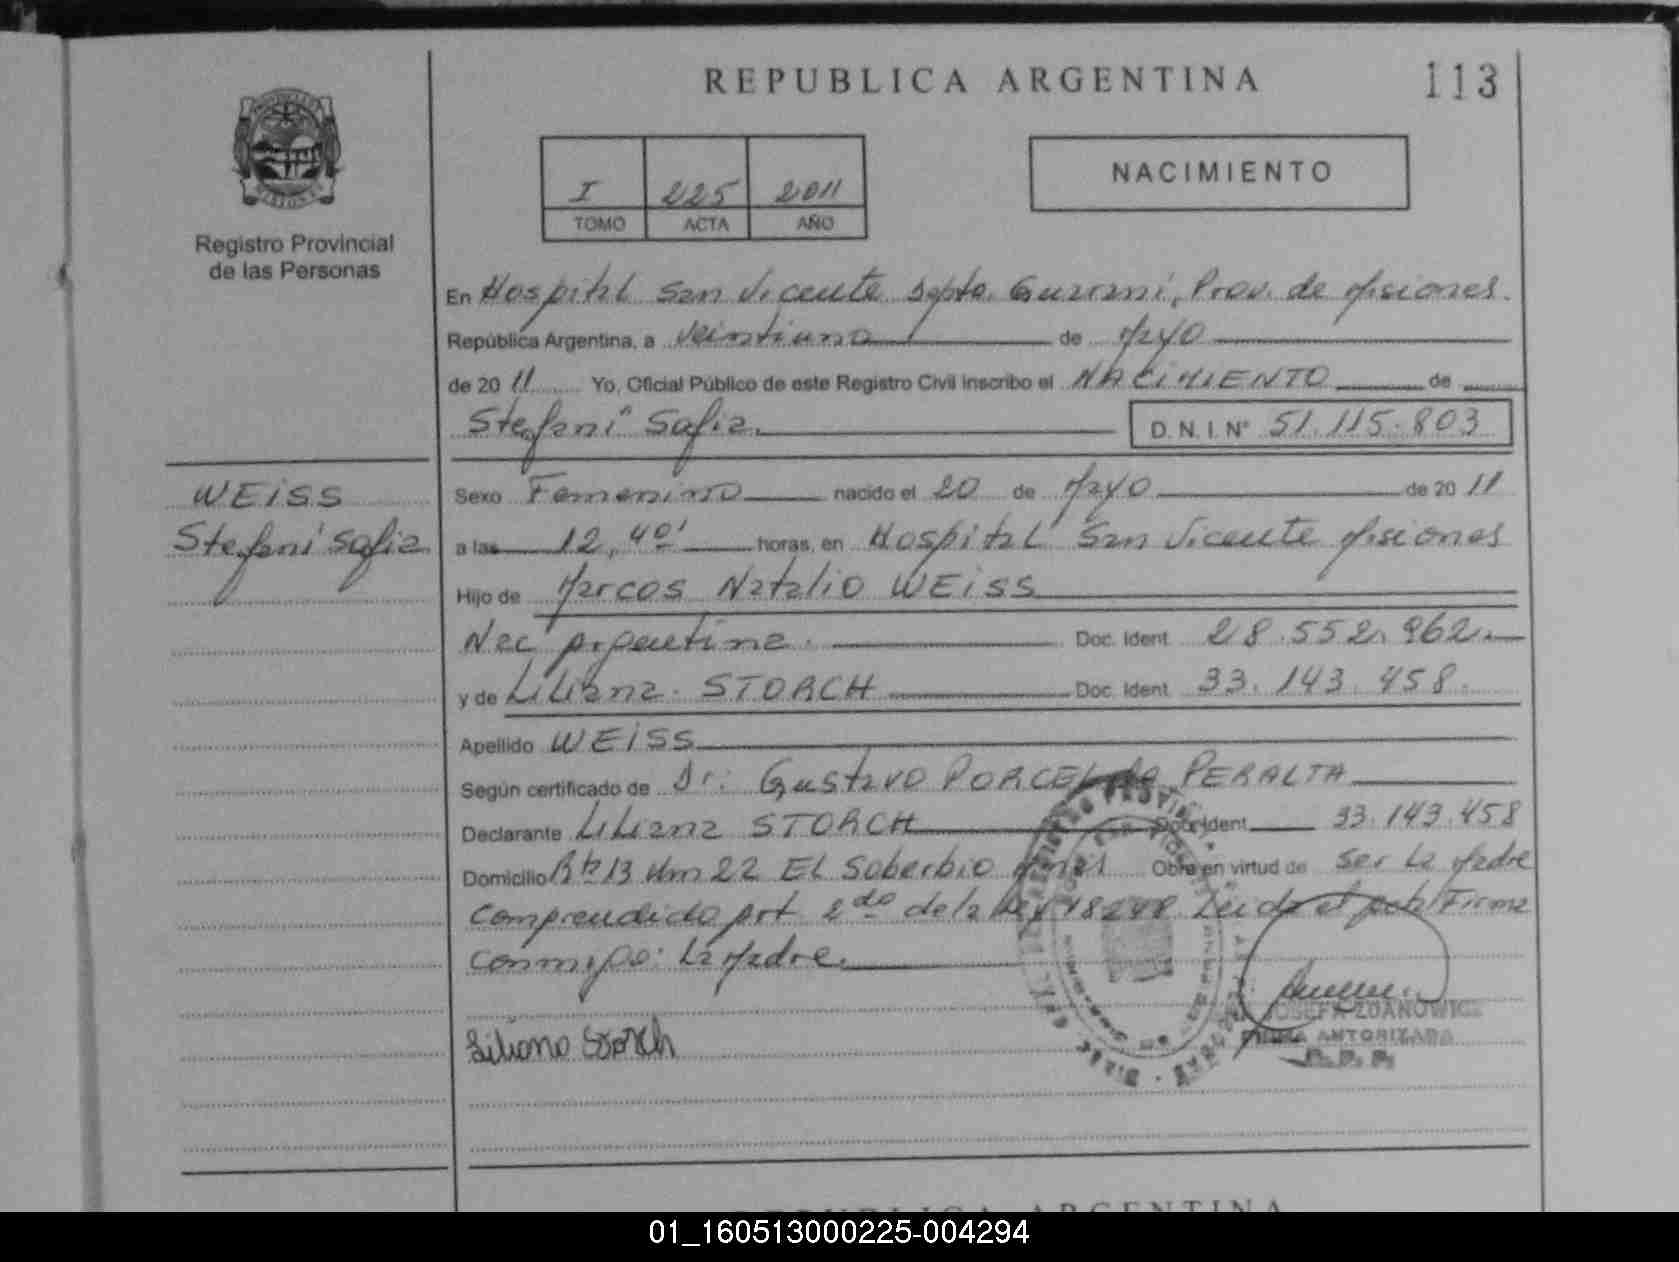 REPUBLICA ARGENTINA
113
Registro Provincial
de las Personas
I 225 2011
TOMO ACTA AÑO
NACIMIENTO
En Hospital San Vicente Dpto. Guaraní, Prov. de Misiones.
República Argentina, a veintiuno de Mayo
de 2011 Yo, Oficial Público de este Registro Civil inscribo el NACIMIENTO de
Stefani Safia.
D.N.I.N° 51.115.803
WEISS
Stefani Safia
Sexo Femenino nacido el 20 de Mayo de 2011
a las 12,40' horas, en Hospital San Vicente Misiones
Hijo de Marcos Natalio WEISS
Nac Argentina. Doc. Ident 28.552.962.
y de Liliana. STORCH Doc. Ident 33.143.458.
Apellido WEISS
Según certificado de Dr: Gustavo PORCEL de PERALTA
Declarante Liliana STORCH Doc. Ident 33.143.458
Domicilio Rta 13 Km 22 El Soberbio Mnes Obra en virtud de ser La Madre
Comprendido Art 2do de la Ley 18248 Leida el acta Firma
Conmigo: La Madre.
Liliana Storch
JOSEFA ZDANOWICZ
FIRMA AUTORIZADA
R.P.P.
REPUBLICA ARGENTINA
01_160513000225-004294